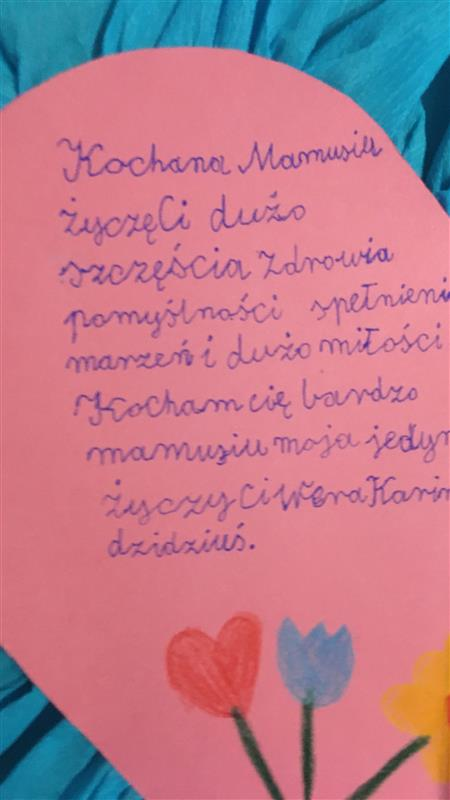 Kochana Mamusiu
życzęCi dużo
szczęścia zdrowia
pomyślności spełnieni
marzeń i dużo miłości
Kocham cię bardzo
mamusiu moja jedyn
życzy Ci Wera Karin
dzidziuś.